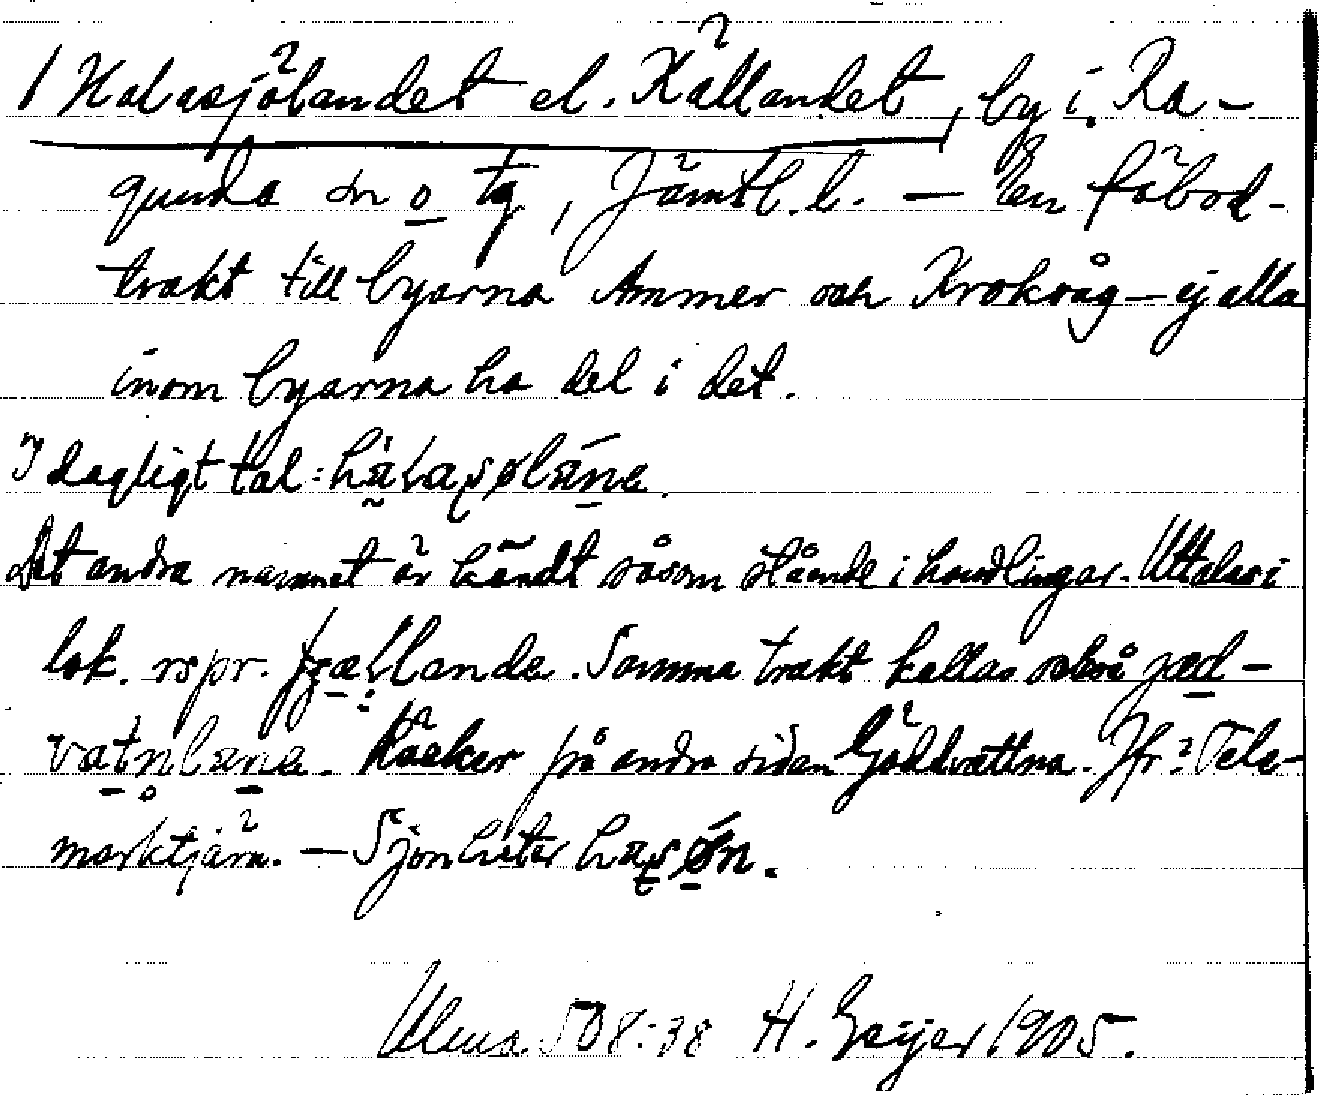 1 Halasjölandet el. Källandet, by i Ra-
gunda sn o tg, Jämtl. l. — En fäbod-
trakt till byarna Ammer och Krokvåg — ej alla
inom byarna ha del i det.
I dagligt tal:
Det andra namnet är kändt såsom stående i handlingar. Uttalas i
lok. rspr. Samma trakt kallas också
Räcker på andra sidan Gäddvattna. Jfr ? Tele-
marktjärn. — Sjön heter
Ulma 508:38 H. Geijer 1905.